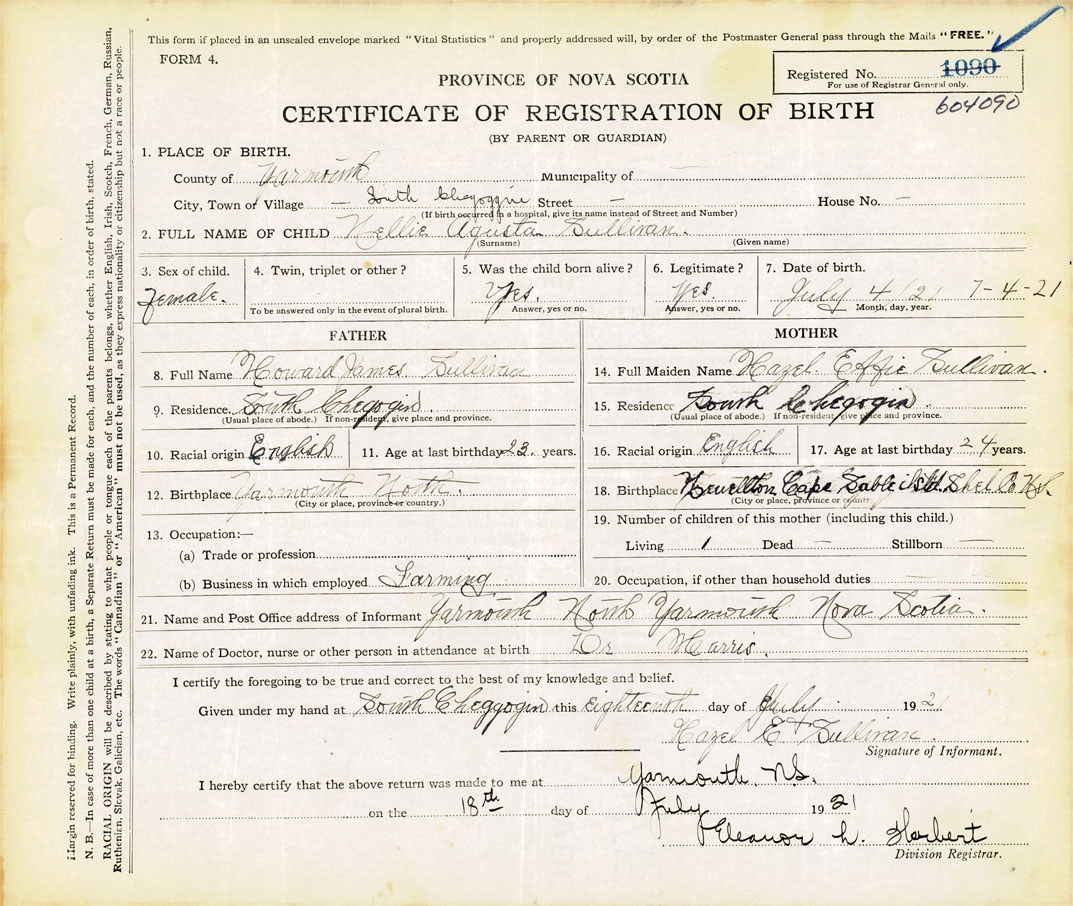 This form if placed in an unsealed envelope marked "Vital Statistics" and properly addressed will, by order of the Postmaster General pass through the Mails "FREE."
FORM 4.
Registered No. 1090
For use of Registrar General only.
604090
PROVINCE OF NOVA SCOTIA
CERTIFICATE OF REGISTRATION OF BIRTH
(BY PARENT OR GUARDIAN)
1. PLACE OF BIRTH.
County of Yarmouth Municipality of —
City, Town or Village — South Chegoggin Street — House No. —
(If birth occurred in a hospital, give its name instead of Street and Number)
2. FULL NAME OF CHILD Nellie Agusta Sullivan.
(Surname) (Given name)
3. Sex of child. 4. Twin, triplet or other? 5. Was the child born alive? 6. Legitimate? 7. Date of birth.
Female. Yes. Yes. July 4 / 21 7-4-21
To be answered only in the event of plural birth. Answer, yes or no. Answer, yes or no. Month, day, year.
FATHER MOTHER
8. Full Name Howard James Sullivan 14. Full Maiden Name Hazel Effie Sullivan.
9. Residence South Chegogin. 15. Residence South Chegogin.
(Usual place of abode.) If non-resident, give place and province. (Usual place of abode.) If non-resident, give place and province.
10. Racial origin English 11. Age at last birthday 23. years. 16. Racial origin English 17. Age at last birthday 24 years.
12. Birthplace Yarmouth North. 18. Birthplace Newellton Cape Sable Isld. Shel Co N.S.
(City or place, province or country.) (City or place, province or country.)
13. Occupation:— 19. Number of children of this mother (including this child.)
(a) Trade or profession Living 1 Dead — Stillborn —
(b) Business in which employed Farming 20. Occupation, if other than household duties —
21. Name and Post Office address of Informant Yarmouth North Yarmouth Nova Scotia.
22. Name of Doctor, nurse or other person in attendance at birth Dr Harris.
I certify the foregoing to be true and correct to the best of my knowledge and belief.
Given under my hand at South Cheggogin this Eighteenth day of July 1921
Hazel E Sullivan.
Signature of Informant.
I hereby certify that the above return was made to me at Yarmouth N.S.
on the 18th day of July 1921
Eleanor L. Herbert
Division Registrar.
Margin reserved for binding. Write plainly, with unfading ink. This is a Permanent Record.
N. B.—In case of more than one child at a birth, a Separate Return must be made for each, and the number of each, in order of birth, stated.
RACIAL ORIGIN will be described by stating to what people or tongue each of the parents belongs, whether English, Irish, Scotch, French, German, Russian,
Ruthenian, Slovak, Galician, etc. The words "Canadian" or "American" must not be used, as they express nationality or citizenship but not a race or people.